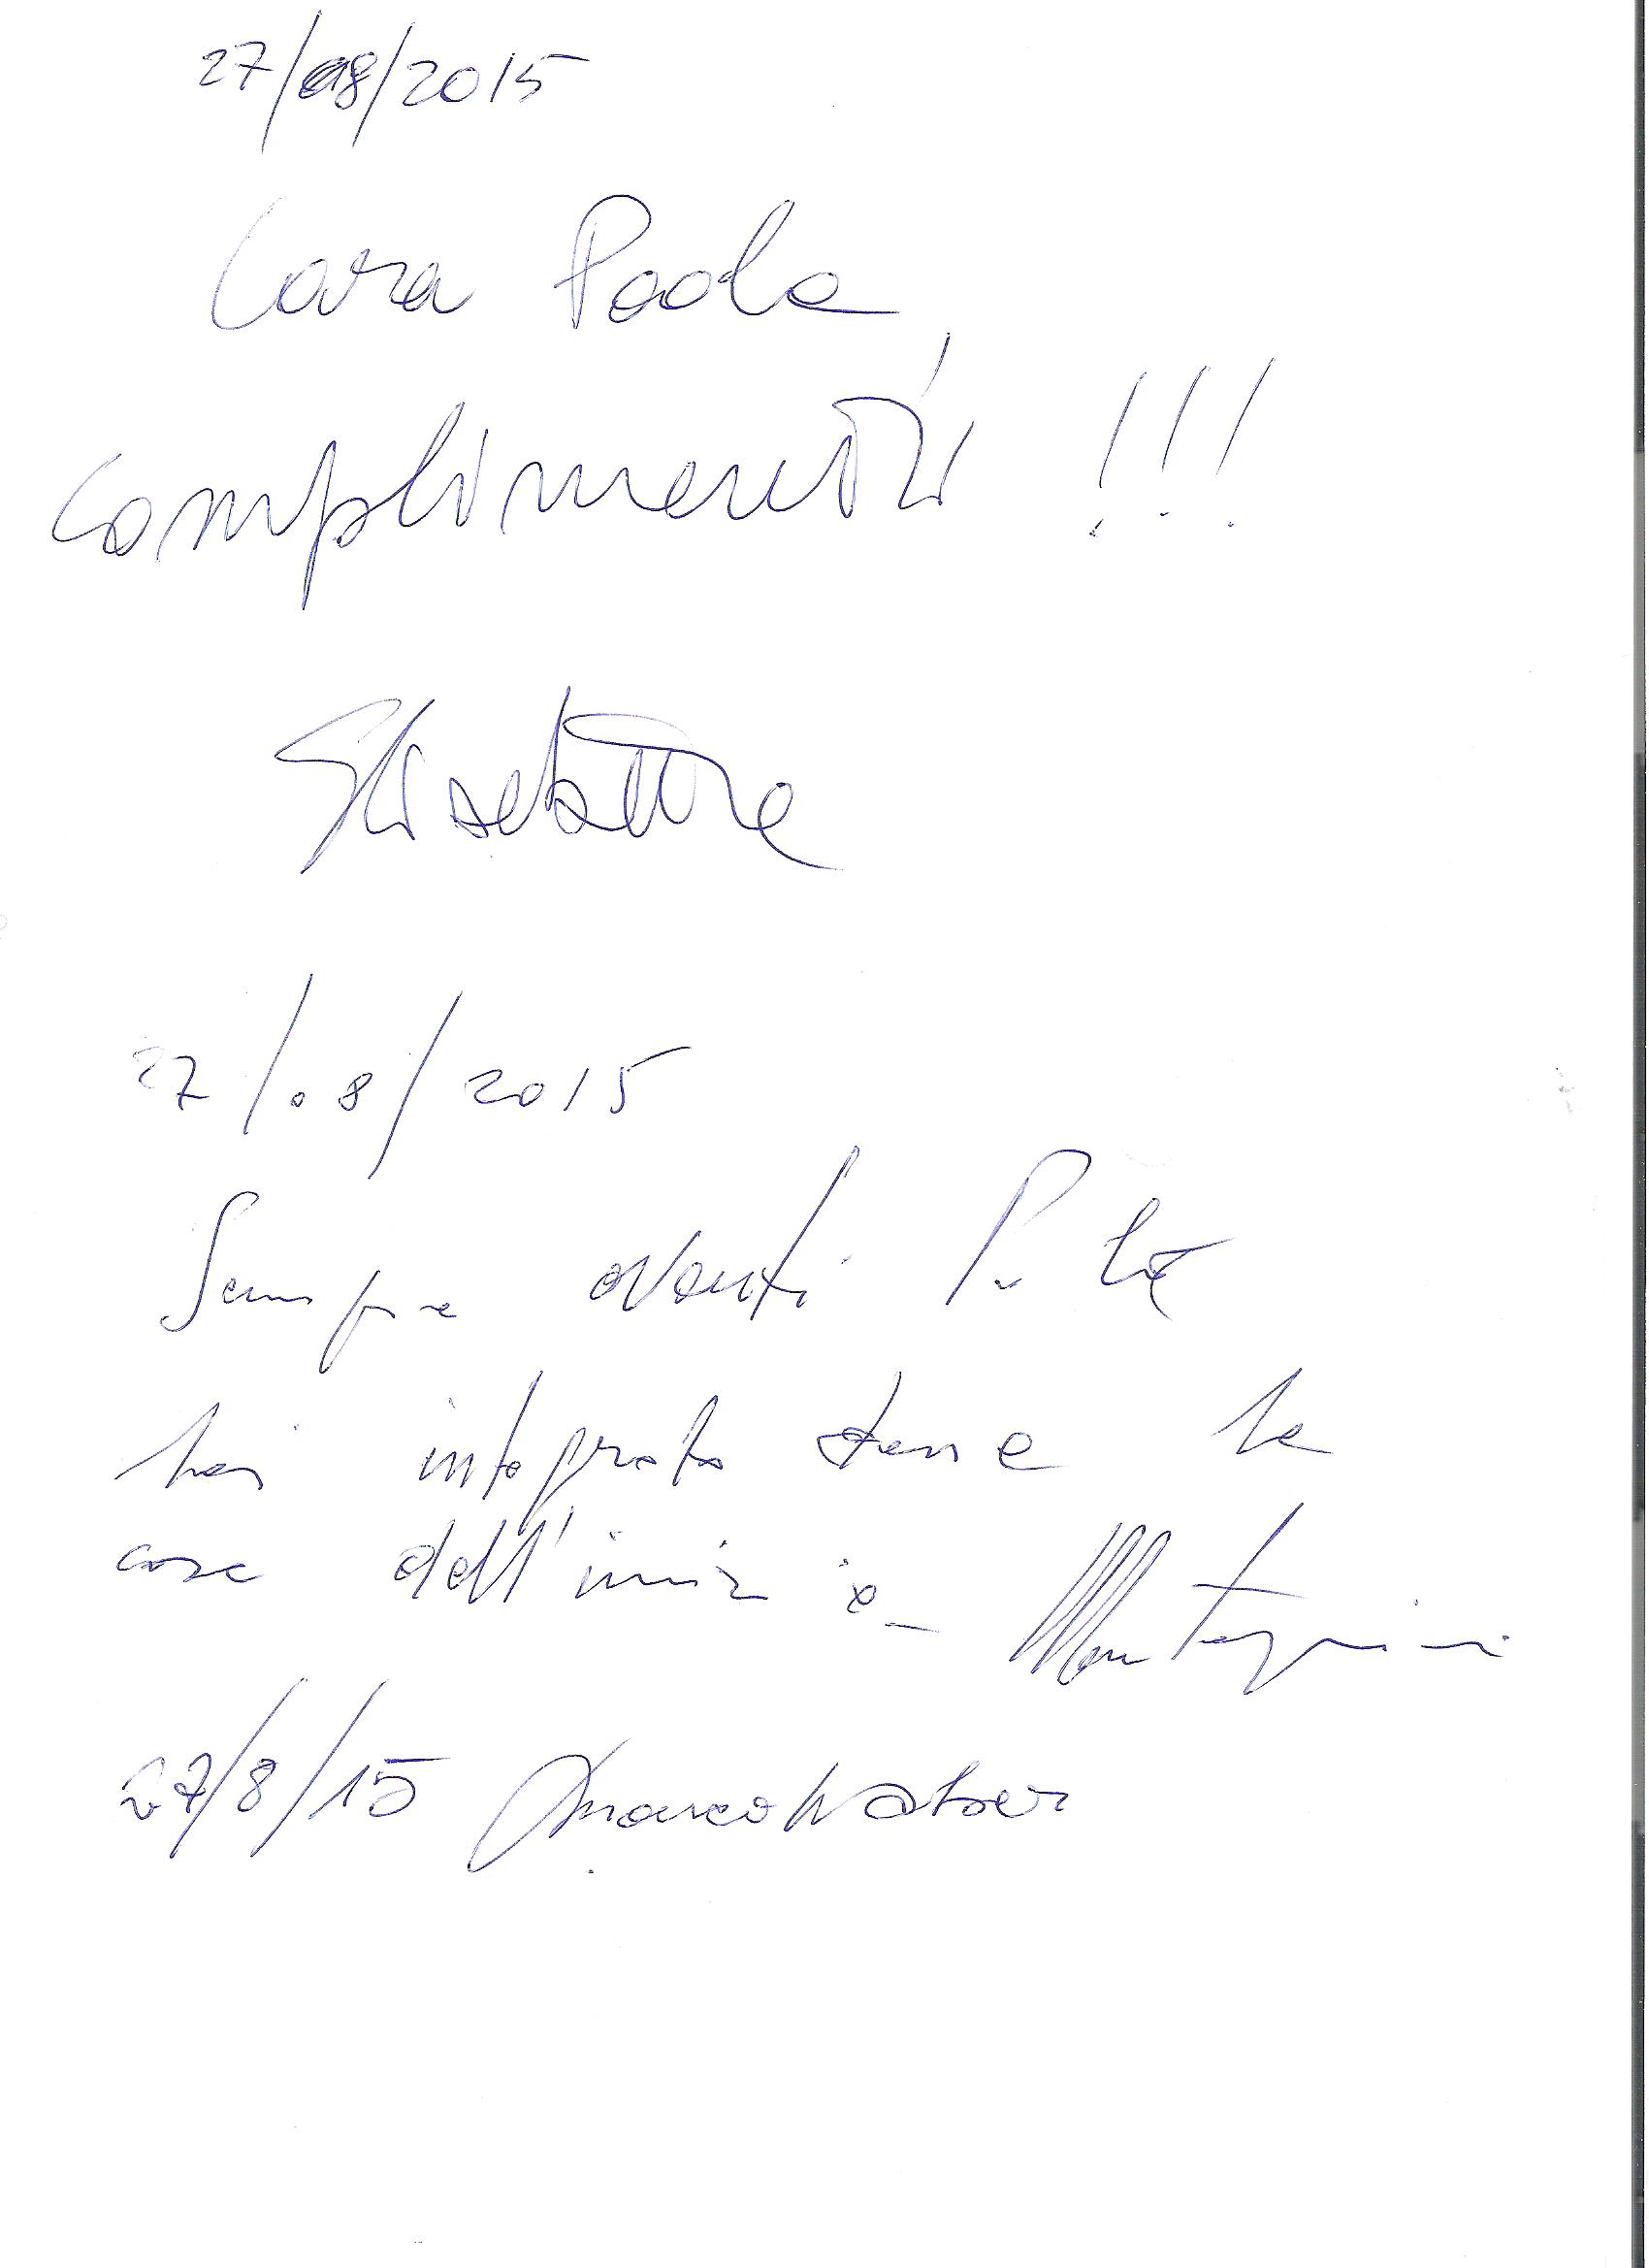 27/08/2015
Cara Paola,
complimenti !!!
Elisabetta
27/08/2015
Sempre avanti
hai integrato bene le
cose dell'inizio
27/8/15 Marco